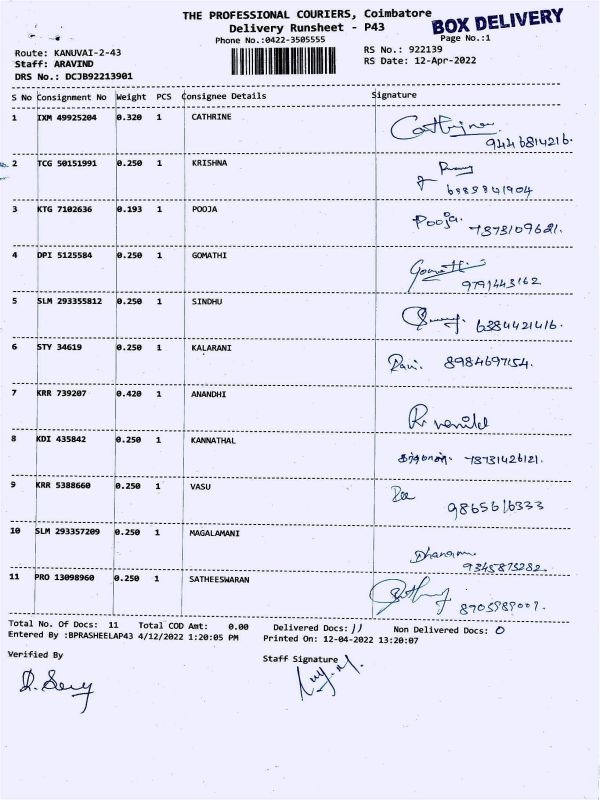 THE PROFESSIONAL COURIERS, Coimbatore
BOX DELIVERY
Delivery Runsheet - P43
Phone No.:0422-3505555
Page No.:1
Route: KANUVAI-2-43
RS No.: 922139
Staff: ARAVIND
RS Date: 12-Apr-2022
DRS No.: DCJB92213901
S No Consignment No Weight PCS Consignee Details Signature
1 IXM 49925204 0.320 1 CATHRINE Cathrine
9446814216.
2 TCG 50151991 0.250 1 KRISHNA
3 KTG 7102636 0.193 1 POOJA Pooja. 7373109621.
4 DPI 5125584 0.250 1 GOMATHI Gomathi
9791443162
5 SLM 293355812 0.250 1 SINDHU 6384421416.
6 STY 34619 0.250 1 KALARANI Rani. 8984697154.
7 KRR 739207 0.420 1 ANANDHI
8 KDI 435842 0.250 1 KANNATHAL 73731426121.
9 KRR 5388660 0.250 1 VASU
9865616333
10 SLM 293357209 0.250 1 MAGALAMANI
9345875282.
11 PRO 13098960 0.250 1 SATHEESWARAN
8905989007.
Total No. Of Docs: 11 Total COD Amt: 0.00 Delivered Docs: 11 Non Delivered Docs: 0
Entered By :BPRASHEELAP43 4/12/2022 1:20:05 PM Printed On: 12-04-2022 13:20:07
Verified By
Staff Signature